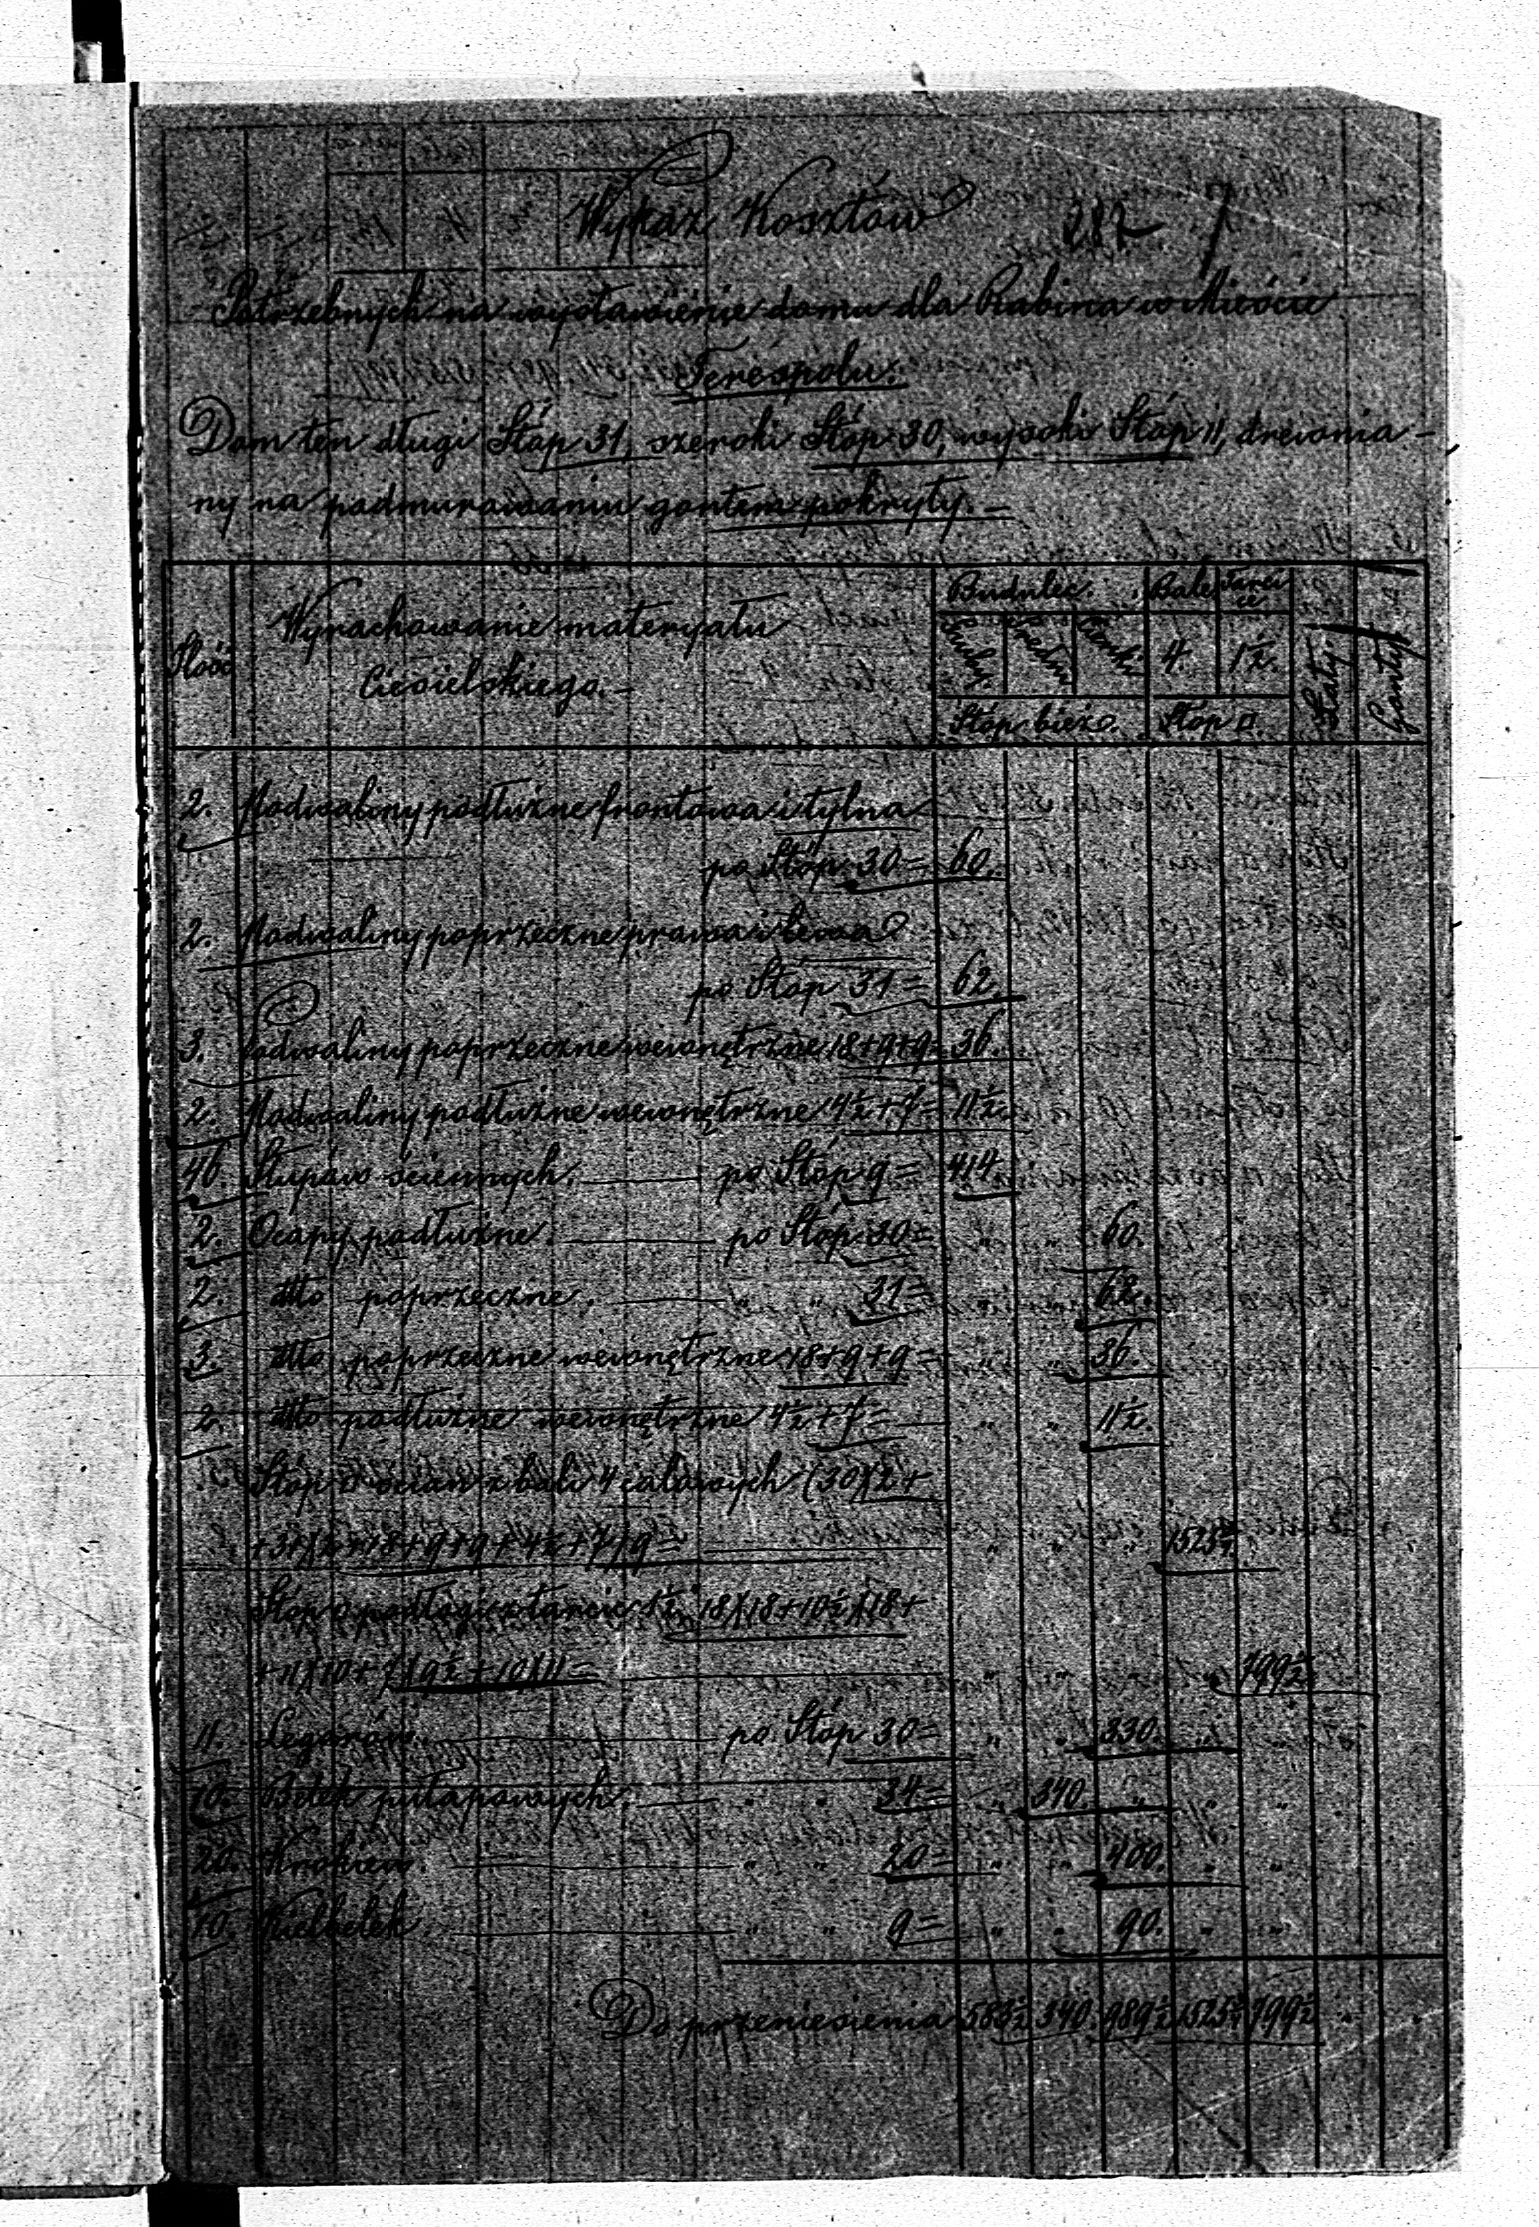 Wykaz Kosztów
282 7
Potrzebnych na wystawienie domu dla Rabina w Mieście
Terespolu.
Dom ten długi Stóp 31, szeroki Stóp 30, wysoki Stóp 11, drewnia-
ny na podmurowaniu gontem pokryty.—
Ilość Wyrachowanie materyału Ciesielskiego.— Budulec. Bale Tarcice Łaty Gonty
4. 1½.
Stóp bież. Stóp □.
2. Podwaliny podłużne frontowa i tylna
po Stóp 30= 60.
2. Podwaliny poprzeczne prawa i lewa
po Stóp 31= 62
3. Podwaliny poprzeczne wewnętrzne 18+9+9= 36.
2. Podwaliny podłużne wewnętrzne 4½+7= 11½.
46. Słupów ściennych. — po Stóp 9= 414
2. Ocapy podłużne. — po Stóp 30= " " 60.
2. dtto poprzeczne. — " " 31= " " 62.
3. dtto poprzeczne wewnętrzne 18+9+9= " " 36.
2. dtto podłużne wewnętrzne 4½+7= — " " 11½.
Stóp □ ścian z bali 4 calowych (30)(2+
" " " 1525¾.
Stóp □ podłogi z tarcic 1½ 18)(18+10½)(18+
+11)(10+7)(9½+10)(11= " " " " 799½.
11. Legarów. — po Stóp 30= " " 330. " "
10. Belek pułapowych. — " " 34= " 340 " " "
20. Krokiew. — " " 20= " " 400. " "
10. — " " 9= " " 90. " "
Do przeniesienia 583½ 340. 989½ 1525¾ 799½ " "